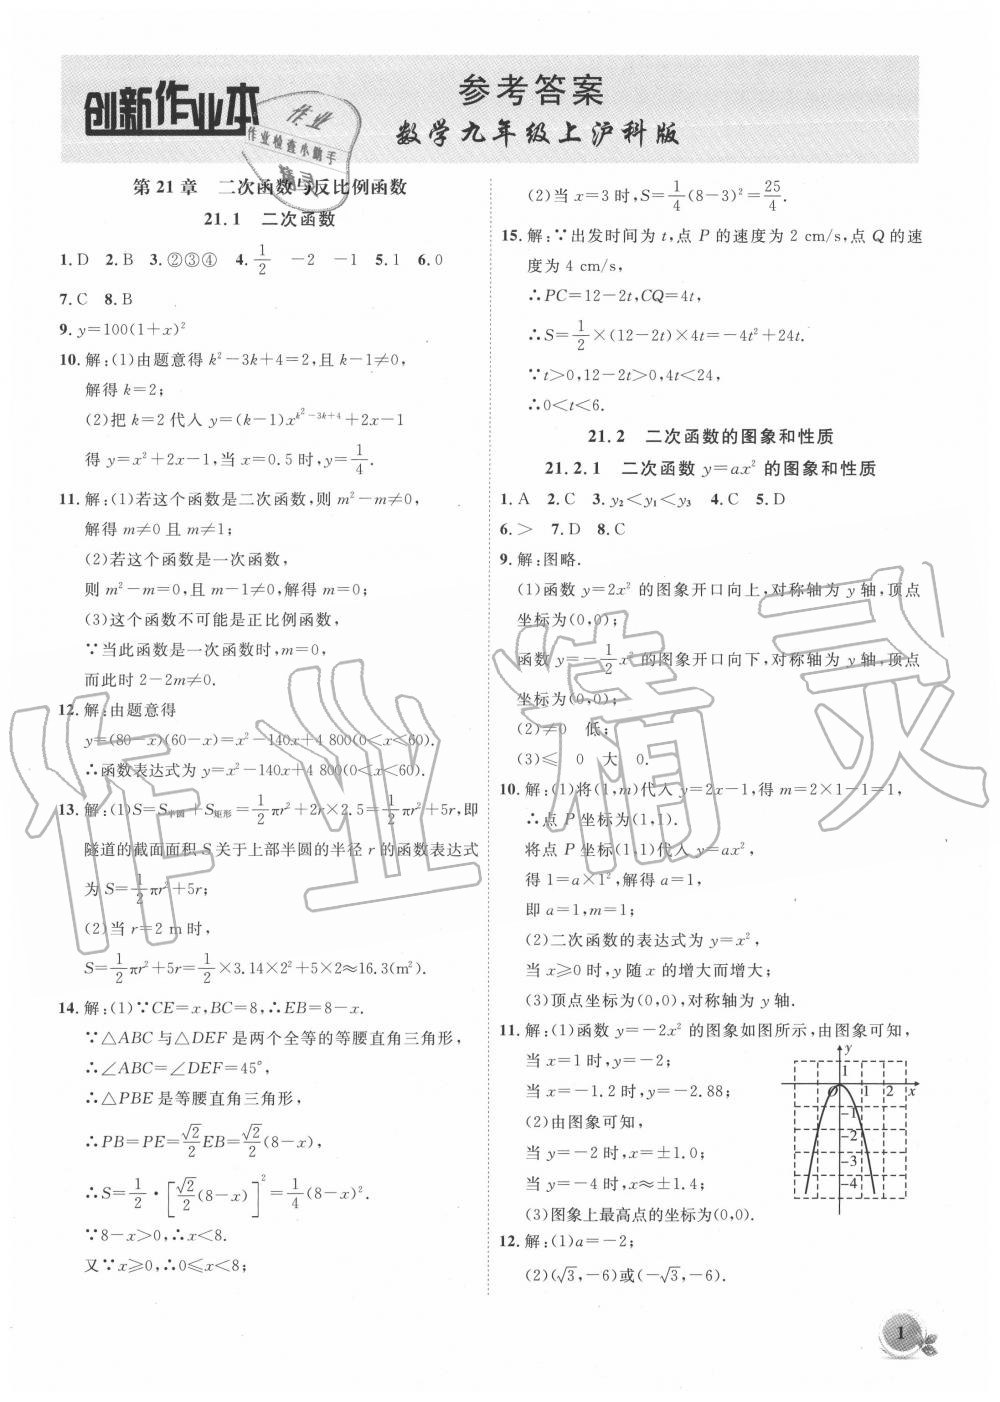 创新作业本
参考答案
数学九年级上沪科版
作业
作业检查小助手
精灵
第21章 二次函数与反比例函数
21.1 二次函数
1.D 2.B 3.②③④ 4.1/2 -2 -1 5.1 6.0
7.C 8.B
9.y=100(1+x)²
10.解:(1)由题意得 k²-3k+4=2,且 k-1≠0,
解得 k=2;
(2)把 k=2 代入 y=(k-1)x^(k²-3k+4)+2x-1
得 y=x²+2x-1,当 x=0.5 时,y=1/4.
11.解:(1)若这个函数是二次函数,则 m²-m≠0,
解得 m≠0 且 m≠1;
(2)若这个函数是一次函数,
则 m²-m=0,且 m-1≠0,解得 m=0;
(3)这个函数不可能是正比例函数,
∵当此函数是一次函数时,m=0,
而此时 2-2m≠0.
12.解:由题意得
y=(80-x)(60-x)=x²-140x+4 800(0<x<60).
∴函数表达式为 y=x²-140x+4 800(0<x<60).
13.解:(1)S=S半圆+S矩形=1/2πr²+2r×2.5=1/2πr²+5r,即
隧道的截面面积 S 关于上部半圆的半径 r 的函数表达式
为 S=1/2πr²+5r;
(2)当 r=2 m 时,
S=1/2πr²+5r=1/2×3.14×2²+5×2≈16.3(m²).
14.解:(1)∵CE=x,BC=8,∴EB=8-x.
∵△ABC 与△DEF 是两个全等的等腰直角三角形,
∴∠ABC=∠DEF=45°,
∴△PBE 是等腰直角三角形,
∴PB=PE=√2/2EB=√2/2(8-x),
∴S=1/2·[√2/2(8-x)]²=1/4(8-x)².
∵8-x>0,∴x<8.
又∵x≥0,∴0≤x<8;
(2)当 x=3 时,S=1/4(8-3)²=25/4.
15.解:∵出发时间为 t,点 P 的速度为 2 cm/s,点 Q 的速
度为 4 cm/s,
∴PC=12-2t,CQ=4t,
∴S=1/2×(12-2t)×4t=-4t²+24t.
∵t>0,12-2t>0,4t<24,
∴0<t<6.
21.2 二次函数的图象和性质
21.2.1 二次函数 y=ax² 的图象和性质
1.A 2.C 3.y₂<y₁<y₃ 4.C 5.D
6.> 7.D 8.C
9.解:图略.
(1)函数 y=2x² 的图象开口向上,对称轴为 y 轴,顶点
坐标为(0,0);
函数 y=-1/2x² 的图象开口向下,对称轴为 y 轴,顶点
坐标为(0,0);
(2)≠0 低;
(3)≤ 0 大 0.
10.解:(1)将(1,m)代入 y=2x-1,得 m=2×1-1=1,
∴点 P 坐标为(1,1).
将点 P 坐标(1,1)代入 y=ax²,
得 1=a×1²,解得 a=1,
即 a=1,m=1;
(2)二次函数的表达式为 y=x²,
当 x≥0 时,y 随 x 的增大而增大;
(3)顶点坐标为(0,0),对称轴为 y 轴.
11.解:(1)函数 y=-2x² 的图象如图所示,由图象可知,
当 x=1 时,y=-2;
当 x=-1.2 时,y=-2.88;
(2)由图象可知,
当 y=-2 时,x=±1.0;
当 y=-4 时,x≈±1.4;
(3)图象上最高点的坐标为(0,0).
y
1
O 1 2 x
-1
-2
-3
-4
12.解:(1)a=-2;
(2)(√3,-6)或(-√3,-6).
作业精灵
1